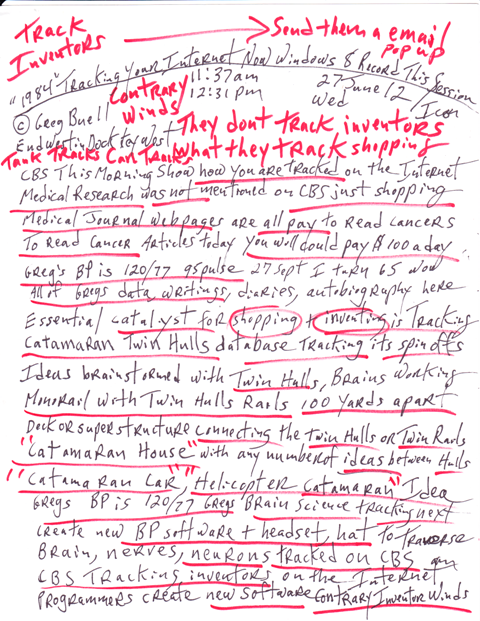 Track Inventors → Send them a email
Pop up
"1984" Tracking Your Internet Now Windows 8 Record This Session
Icon
© Greg Buell Contrary Winds 11:37am 12:31pm 27 June 12 Wed
End West in Dock Key West
They dont Track, inventors
Tank Tracks Car Tracks what they track shopping
CBS This Morning Show how you are tracked on the Internet
Medical Research was not mentioned on CBS just shopping
Medical Journal webpages are all pay to read cancers
To Read Cancer Articles today you will could pay $100 a day
Greg's BP is 120/77 95pulse 27 Sept I turn 65 wow
All of Gregs data, writings, diaries, autobiography here
Essential catalyst for shopping + inventing is Tracking
Catamaran Twin Hulls database tracking its spin offs
Ideas brainstormed with Twin Hulls, Brains working
Monorail with Twin Hulls Rails 100 yards apart
Dock or superstructure connecting the Twin Hulls or Twin Rails
"Catamaran House" with any number of ideas between Hulls
"Catamaran Car" "Helicopter Catamaran" Idea
Gregs BP is 120/77 Gregs Brain Science tracking next
create new BP software + headset, hat To Traverse
Brain, nerves, neurons tracked on CBS
CBS Tracking inventors on the Internet
Programmers create new software Contrary Inventor Winds